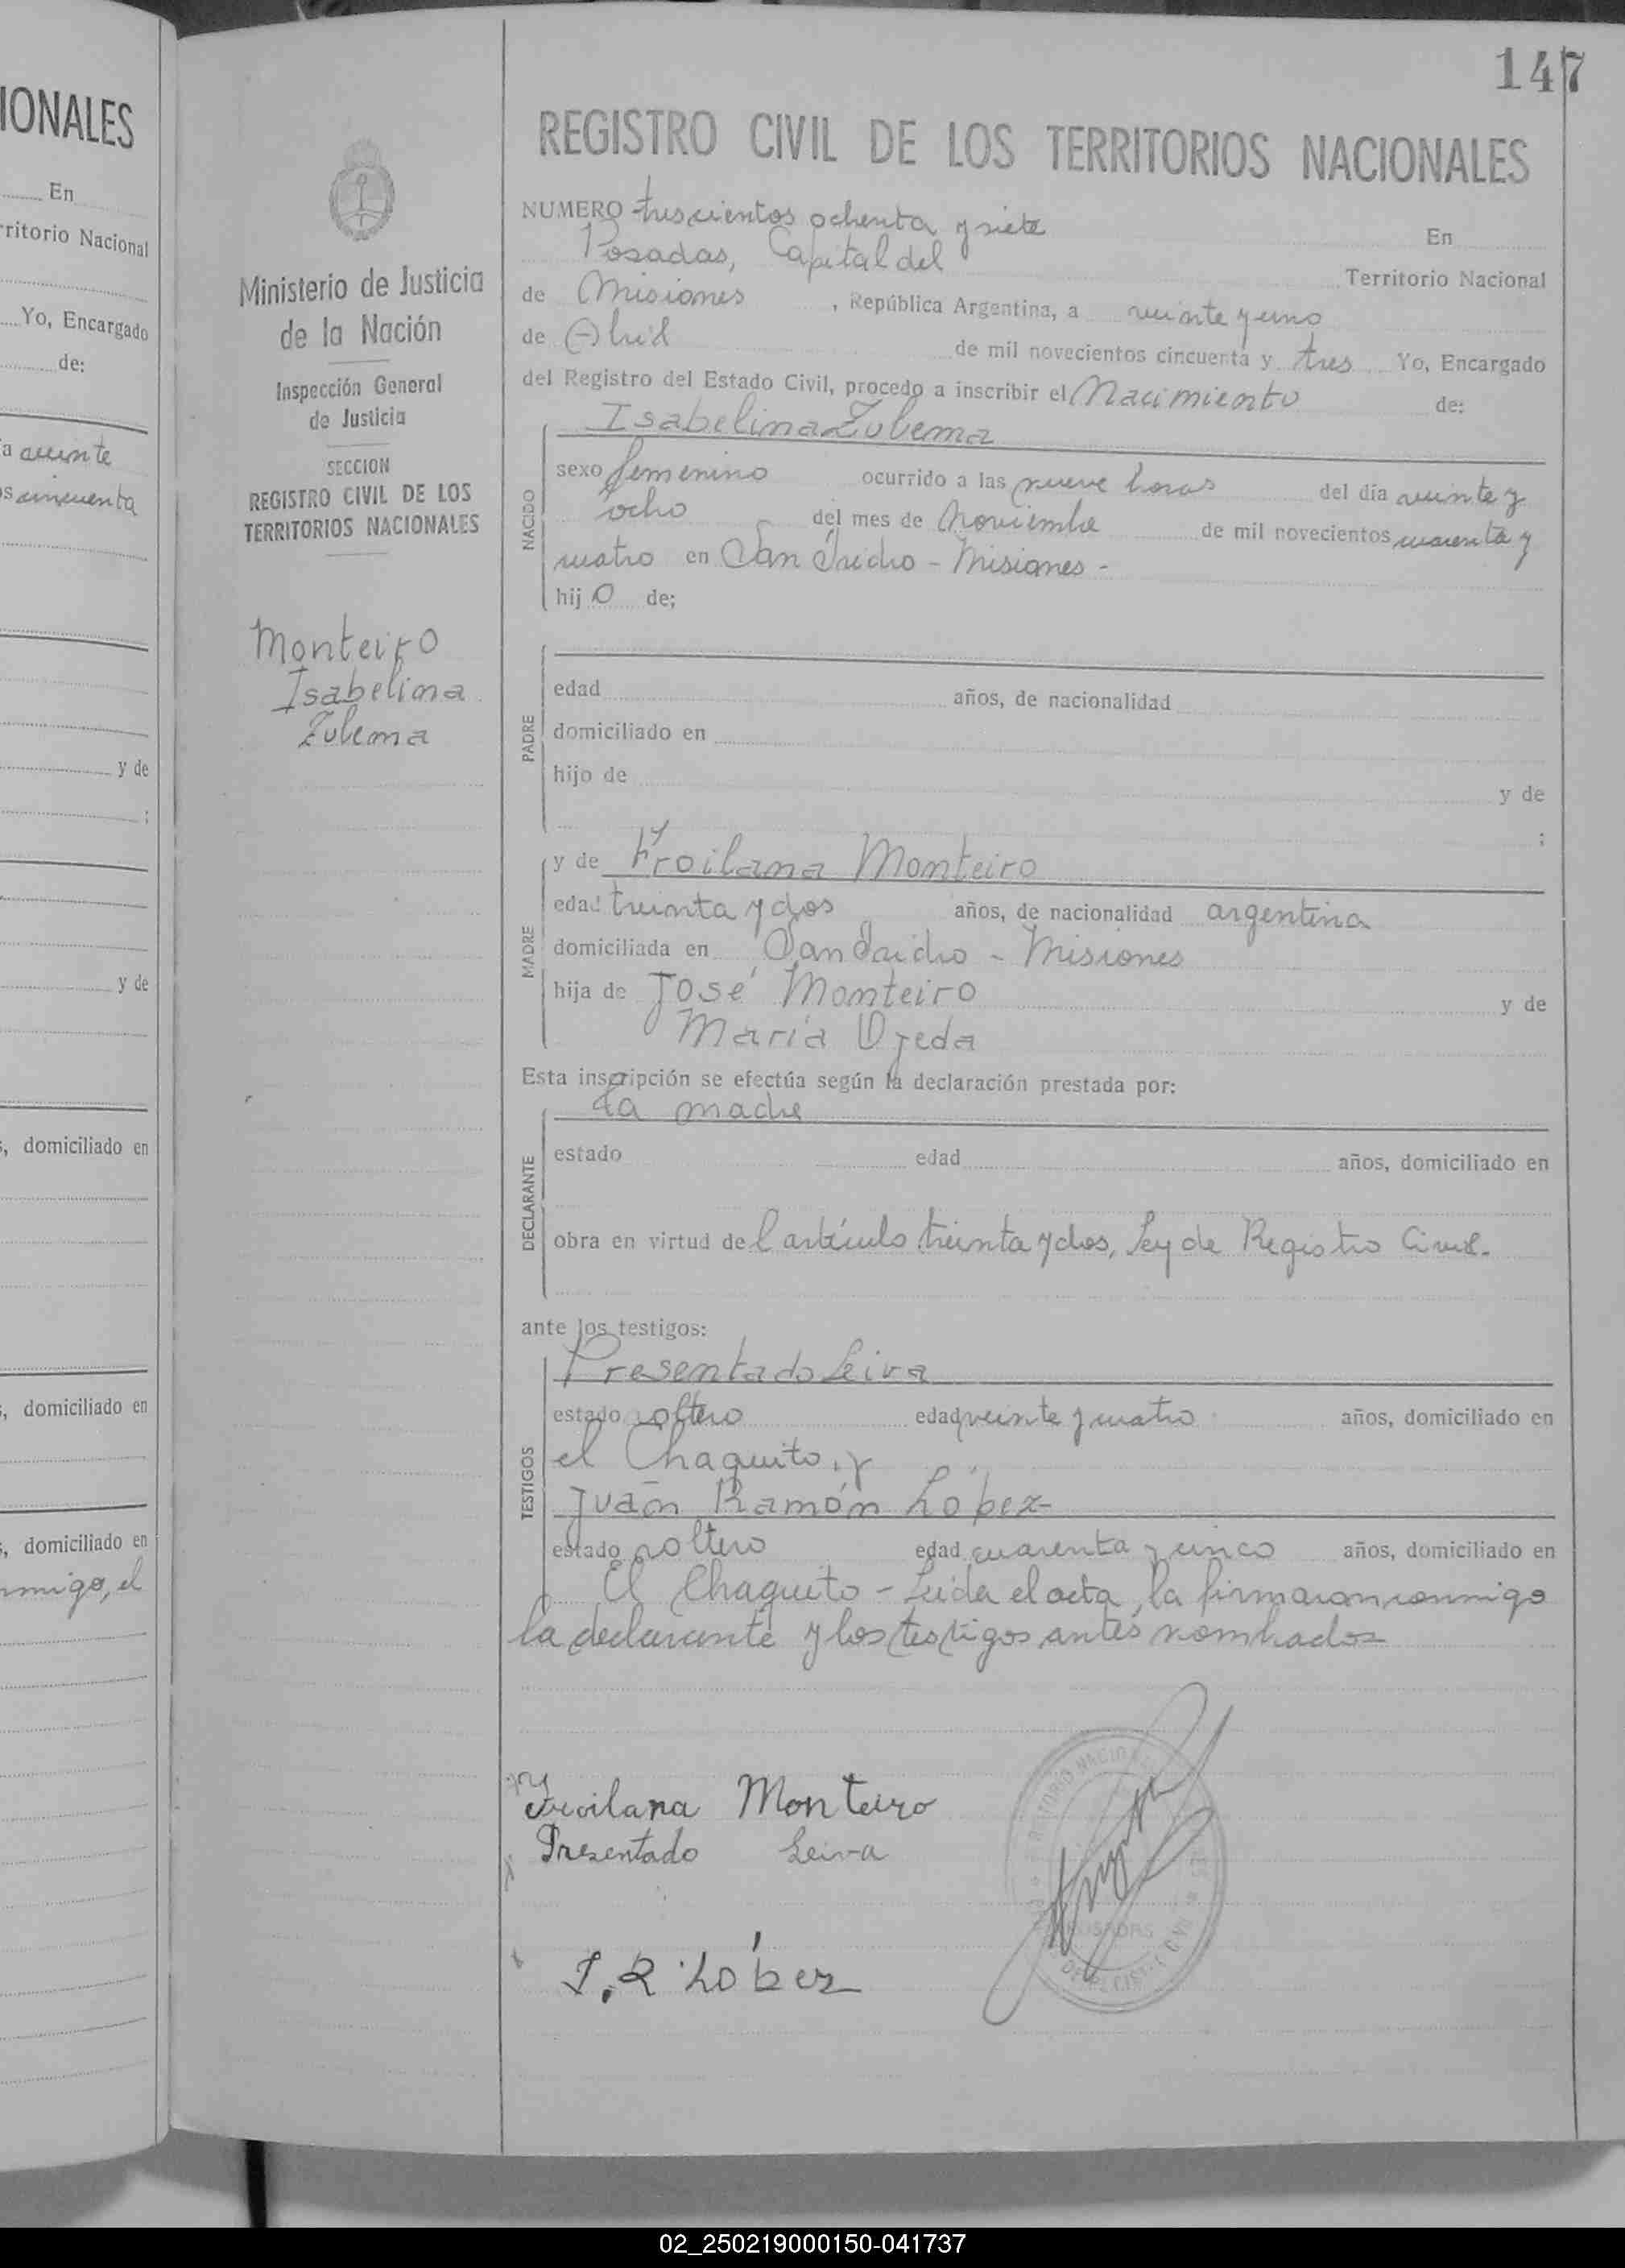 IONALES
En
rritorio Nacional
Yo, Encargado
de:
a veinte
s cincuenta
y de
;
y de
, domiciliado en
, domiciliado en
, domiciliado en
nmigo, el
147
Ministerio de Justicia
de la Nación
Inspección General
de Justicia
SECCION
REGISTRO CIVIL DE LOS
TERRITORIOS NACIONALES
Monteiro
Isabelina
Zulema
REGISTRO CIVIL DE LOS TERRITORIOS NACIONALES
NUMERO trescientos ochenta y siete En
Posadas, Capital del Territorio Nacional
de Misiones , República Argentina, a veinte y uno
de Abril de mil novecientos cincuenta y tres Yo, Encargado
del Registro del Estado Civil, procedo a inscribir el Nacimiento de:
Isabelina Zulema
NACIDO
sexo femenino ocurrido a las nueve horas del día veinte y
ocho del mes de Noviembre de mil novecientos cuarenta y
cuatro en San Isidro - Misiones -
hij o de;
PADRE
edad años, de nacionalidad
domiciliado en
hijo de y de
;
MADRE
y de Froilana Monteiro
edad treinta y dos años, de nacionalidad argentina
domiciliada en San Isidro - Misiones
hija de José Monteiro y de
María Ojeda
Esta inscripción se efectúa según la declaración prestada por:
DECLARANTE
La madre
estado edad años, domiciliado en
obra en virtud del artículo treinta y dos, Ley de Registro Civil.
ante los testigos:
TESTIGOS
Presentado Leiva
estado soltero edad veinte y cuatro años, domiciliado en
el Chaquito, y
Juan Ramón López
estado soltero edad cuarenta y cinco años, domiciliado en
El Chaquito - Leída el acta, la firmaron conmigo
la declarante y los testigos antes nombrados
Froilana Monteiro
Presentado Leiva
J. R López
POSADAS
02_250219000150-041737